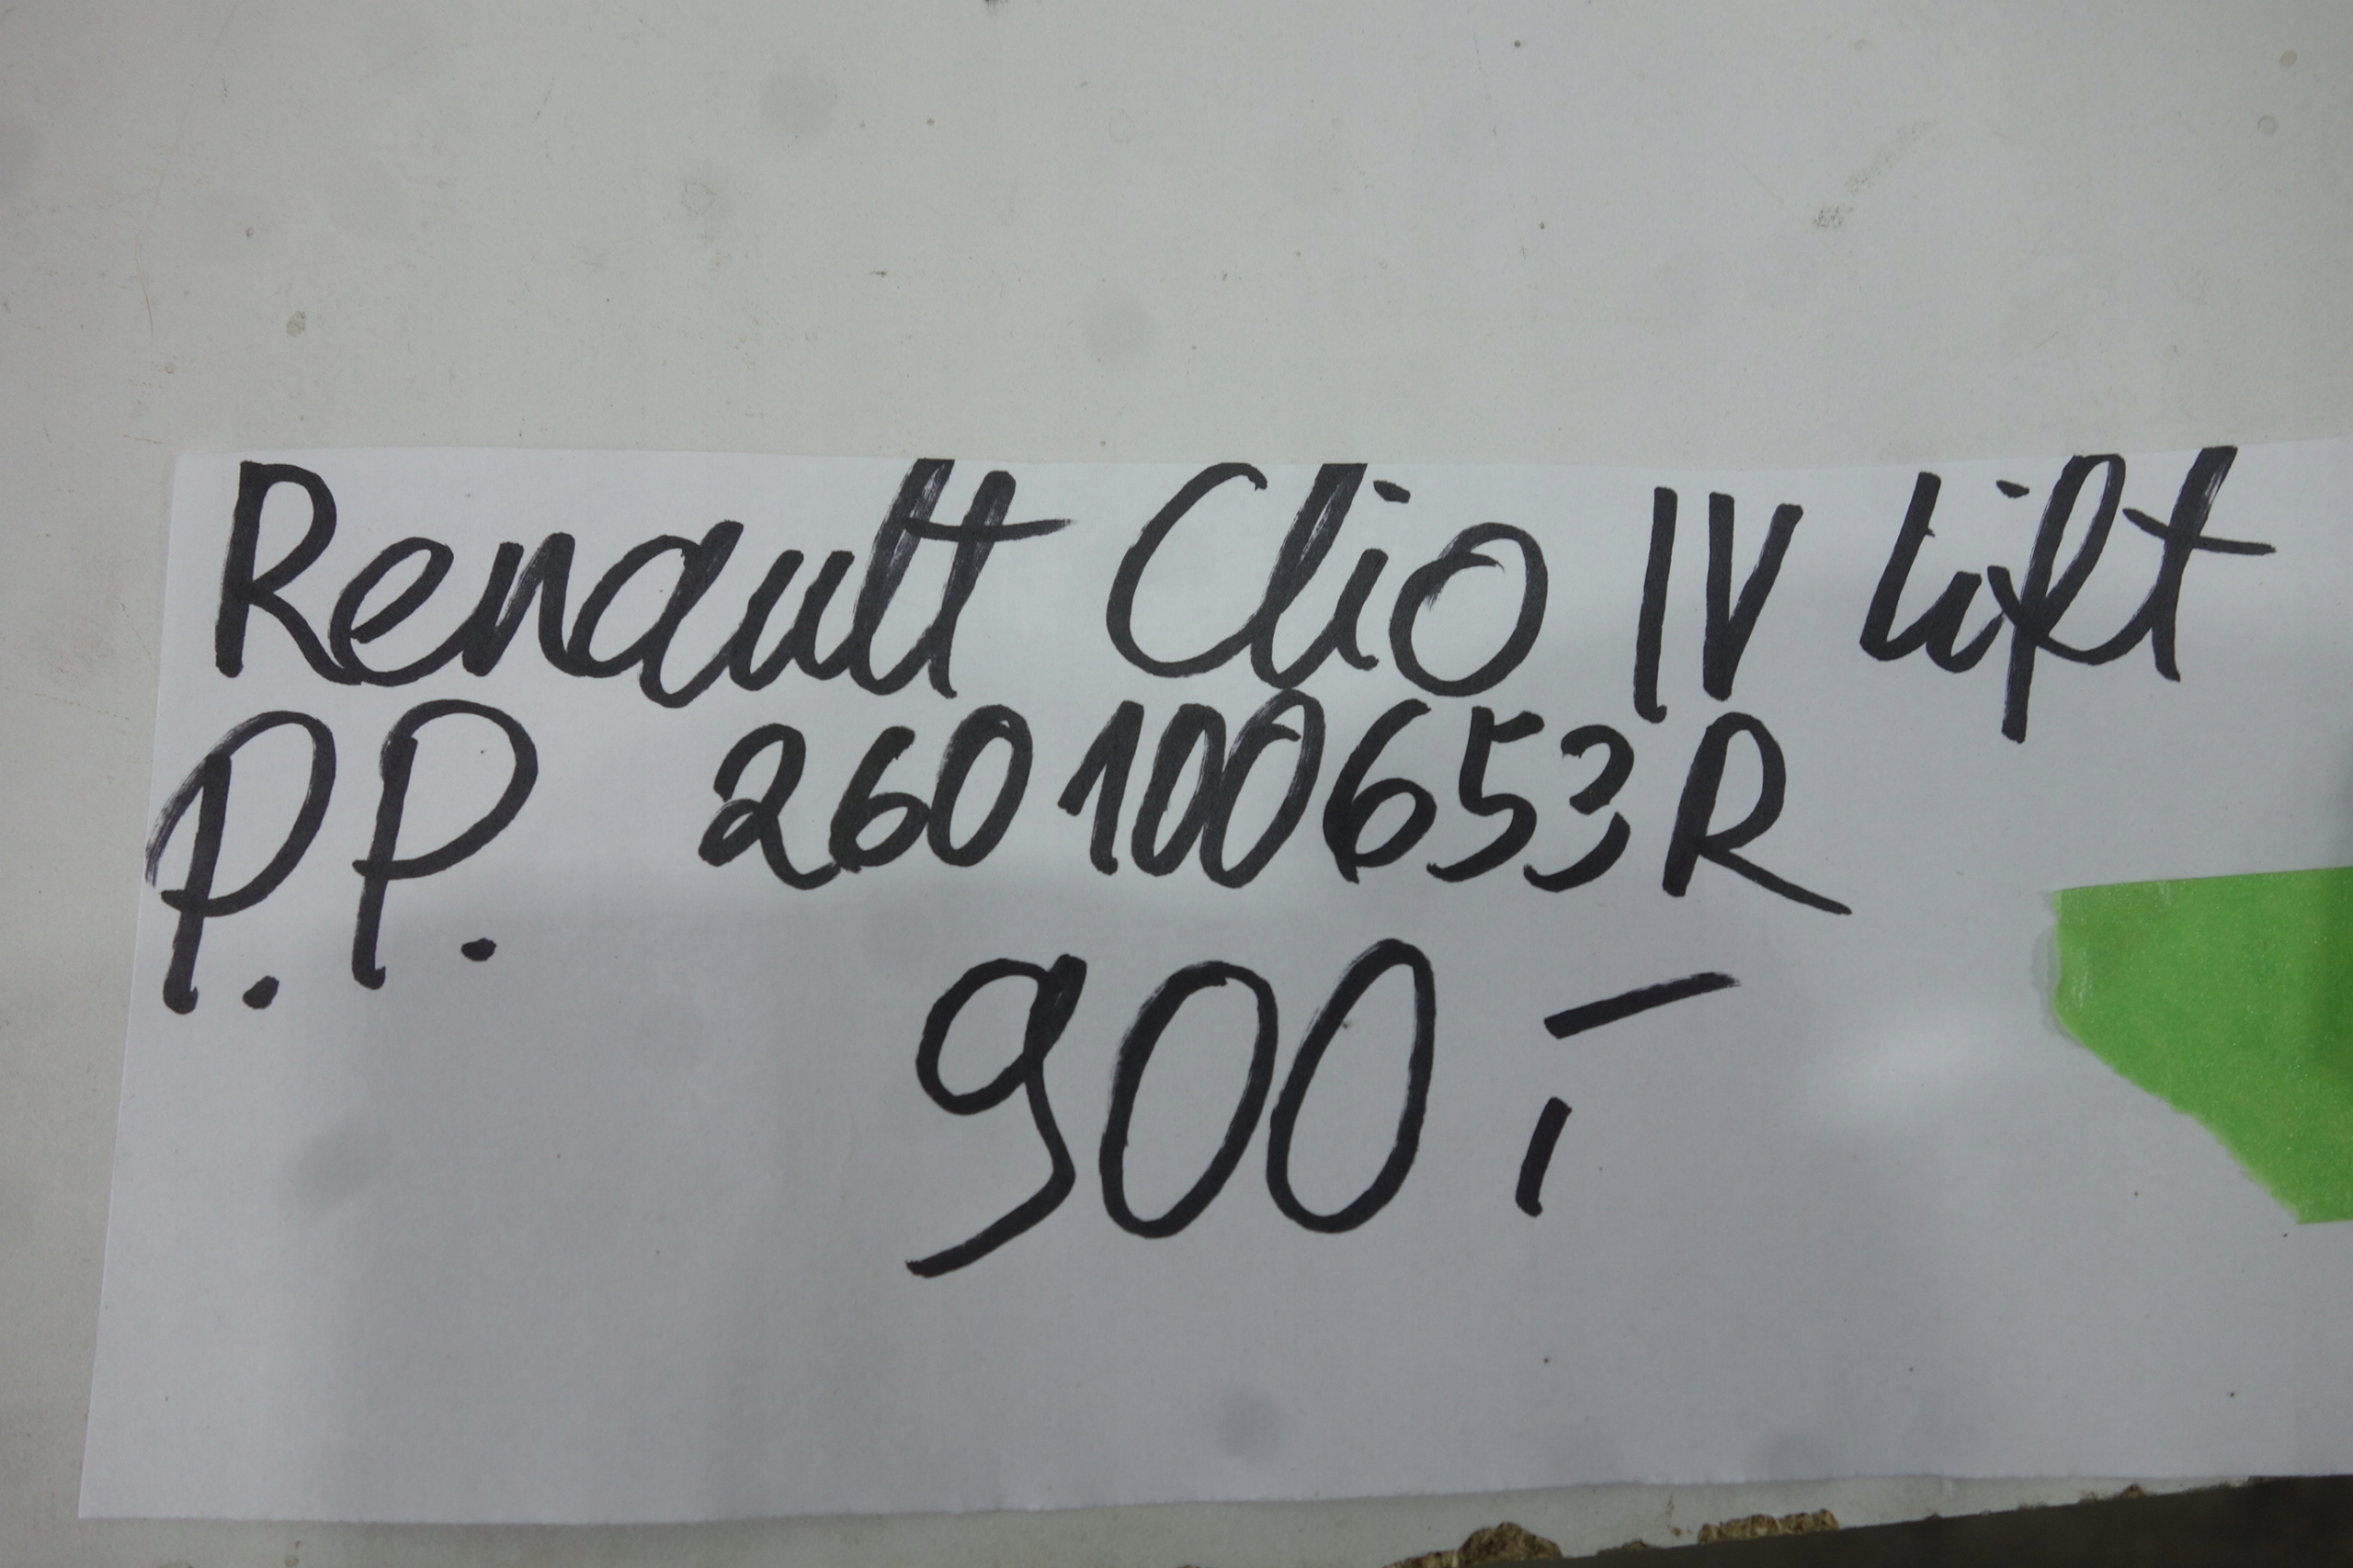 Renault Clio IV Lift
P.P. 260100653R
900,-